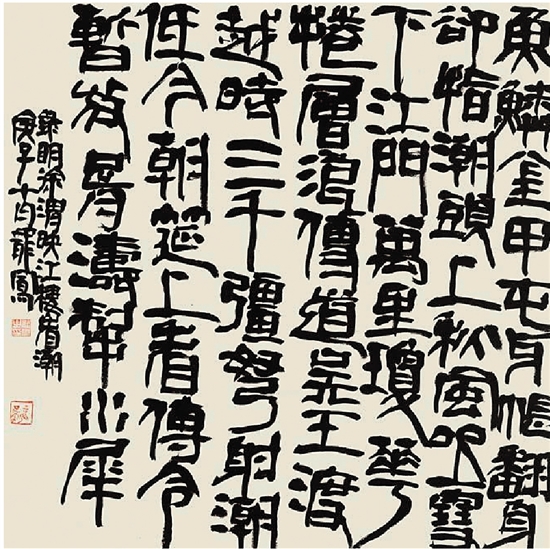 魚鱗金甲屯牙帳翻身
卻指潮頭上秋風吹雪
下江門萬里瓊花
捲層浪傳道吳王渡
越時三千彊弩射潮
低今朝筵上看傳令
暫放胥濤掣水犀
錄明徐渭映江樓看潮
庚子十月